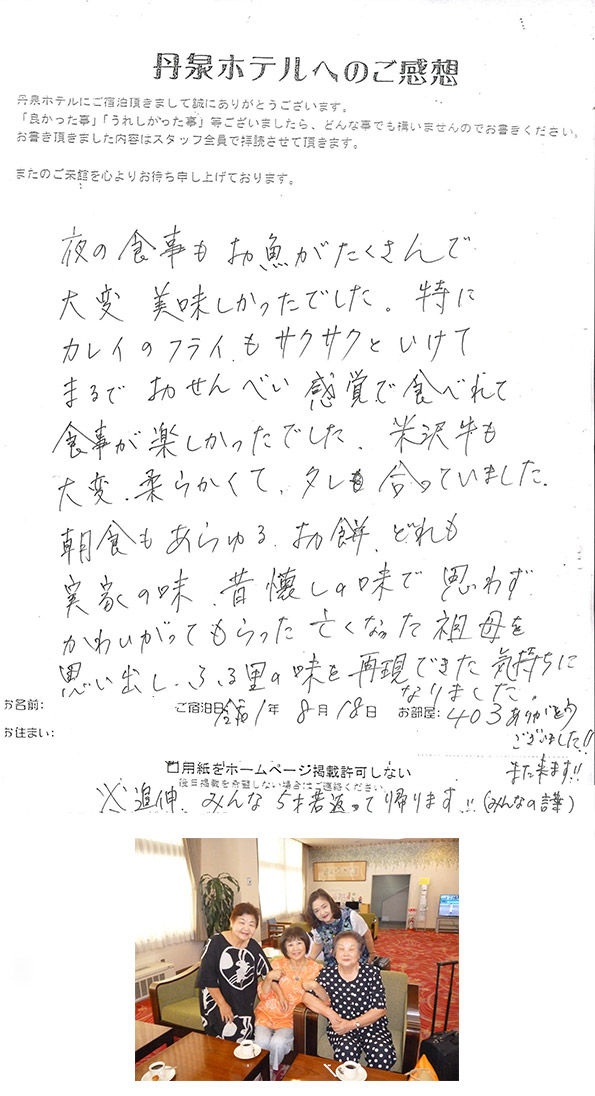 丹泉ホテルへのご感想
丹泉ホテルにご宿泊頂きまして誠にありがとうございます。
「良かった事」「うれしかった事」等ございましたら、どんな事でも構いませんのでお書きください。
お書き頂きました内容はスタッフ全員で拝読させて頂きます。
またのご来館を心よりお待ち申し上げております。
夜の食事も お魚がたくさんで
大変 美味しかったでした。特に
カレイのフライもサクサクといけて
まるで おせんべい感覚で食べれて
食事が楽しかったでした、米沢牛も
大変、柔らかくて、タレも合っていました、
朝食もあらゆる、お餅、どれも
実家の味、昔懐しの味で 思わず
かわいがってもらった亡くなった祖母を
思い出し、ふる里の味を再現できた気持ちに
なりました。
お名前: ご宿泊日 令和1年 8月18日 お部屋: 403
ありがとう
ございました!!
お住まい:
また来ます!!
口用紙をホームページ掲載許可しない
後日掲載を希望しない場合はご連絡ください
※追伸、みんな5才若返って帰ります!!(みんなの言葉)